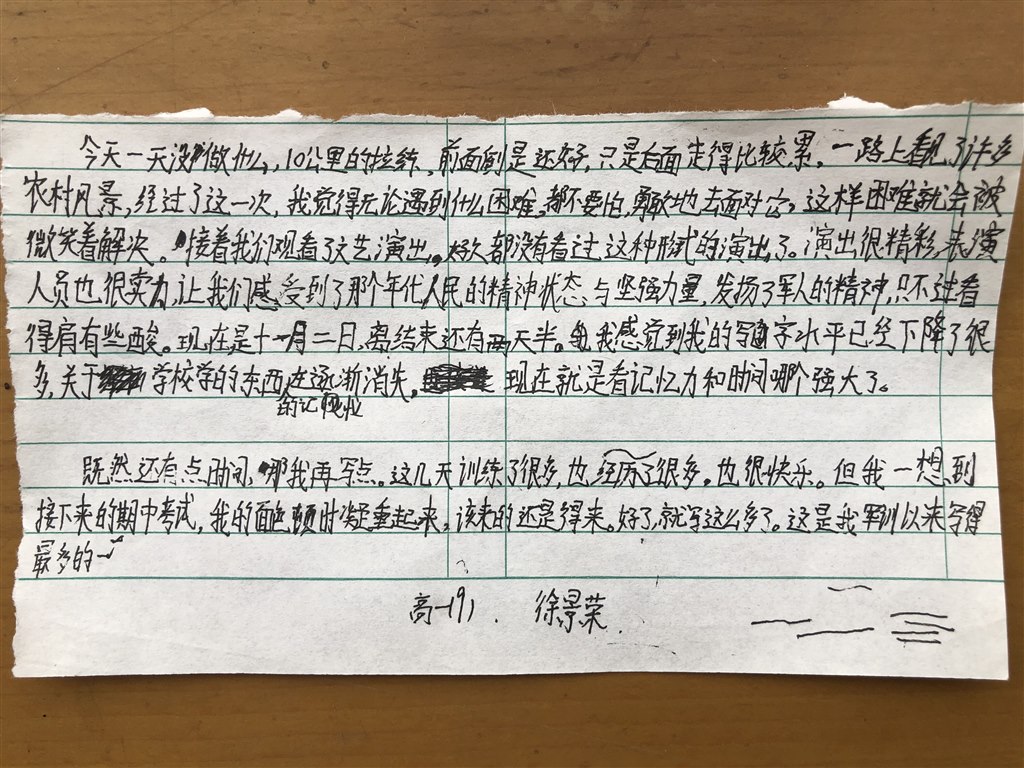 今天一天没做什么，10公里的拉练，前面倒是还好，只是后面走得比较累。一路上看见了许多
农村风景，经过了这一次，我觉得无论遇到什么困难，都不要怕，勇敢地去面对它，这样困难就会被
微笑着解决。接着我们观看了文艺演出，好久都没有看过这种形式的演出了。演出很精彩，表演
人员也很卖力，让我们感受到了那个年代人民的精神状态与坚强力量，发扬了军人的精神，只不过看
得肩有些酸。现在是十一月二日，离结束还有两天半。我感觉到我的写字水平已经下降了很
多，关于学校学的东西的记忆在逐渐消失。现在就是看记忆力和时间哪个强大了。
既然还有点时间，那我再写点。这几天训练了很多，也经历了很多。也很快乐。但我一想到
接下来的期中考试，我的面色顿时凝重起来，该来的还是得来。好了，就写这么多了。这是我军训以来写得
最多的一
高一(9) 徐景荣